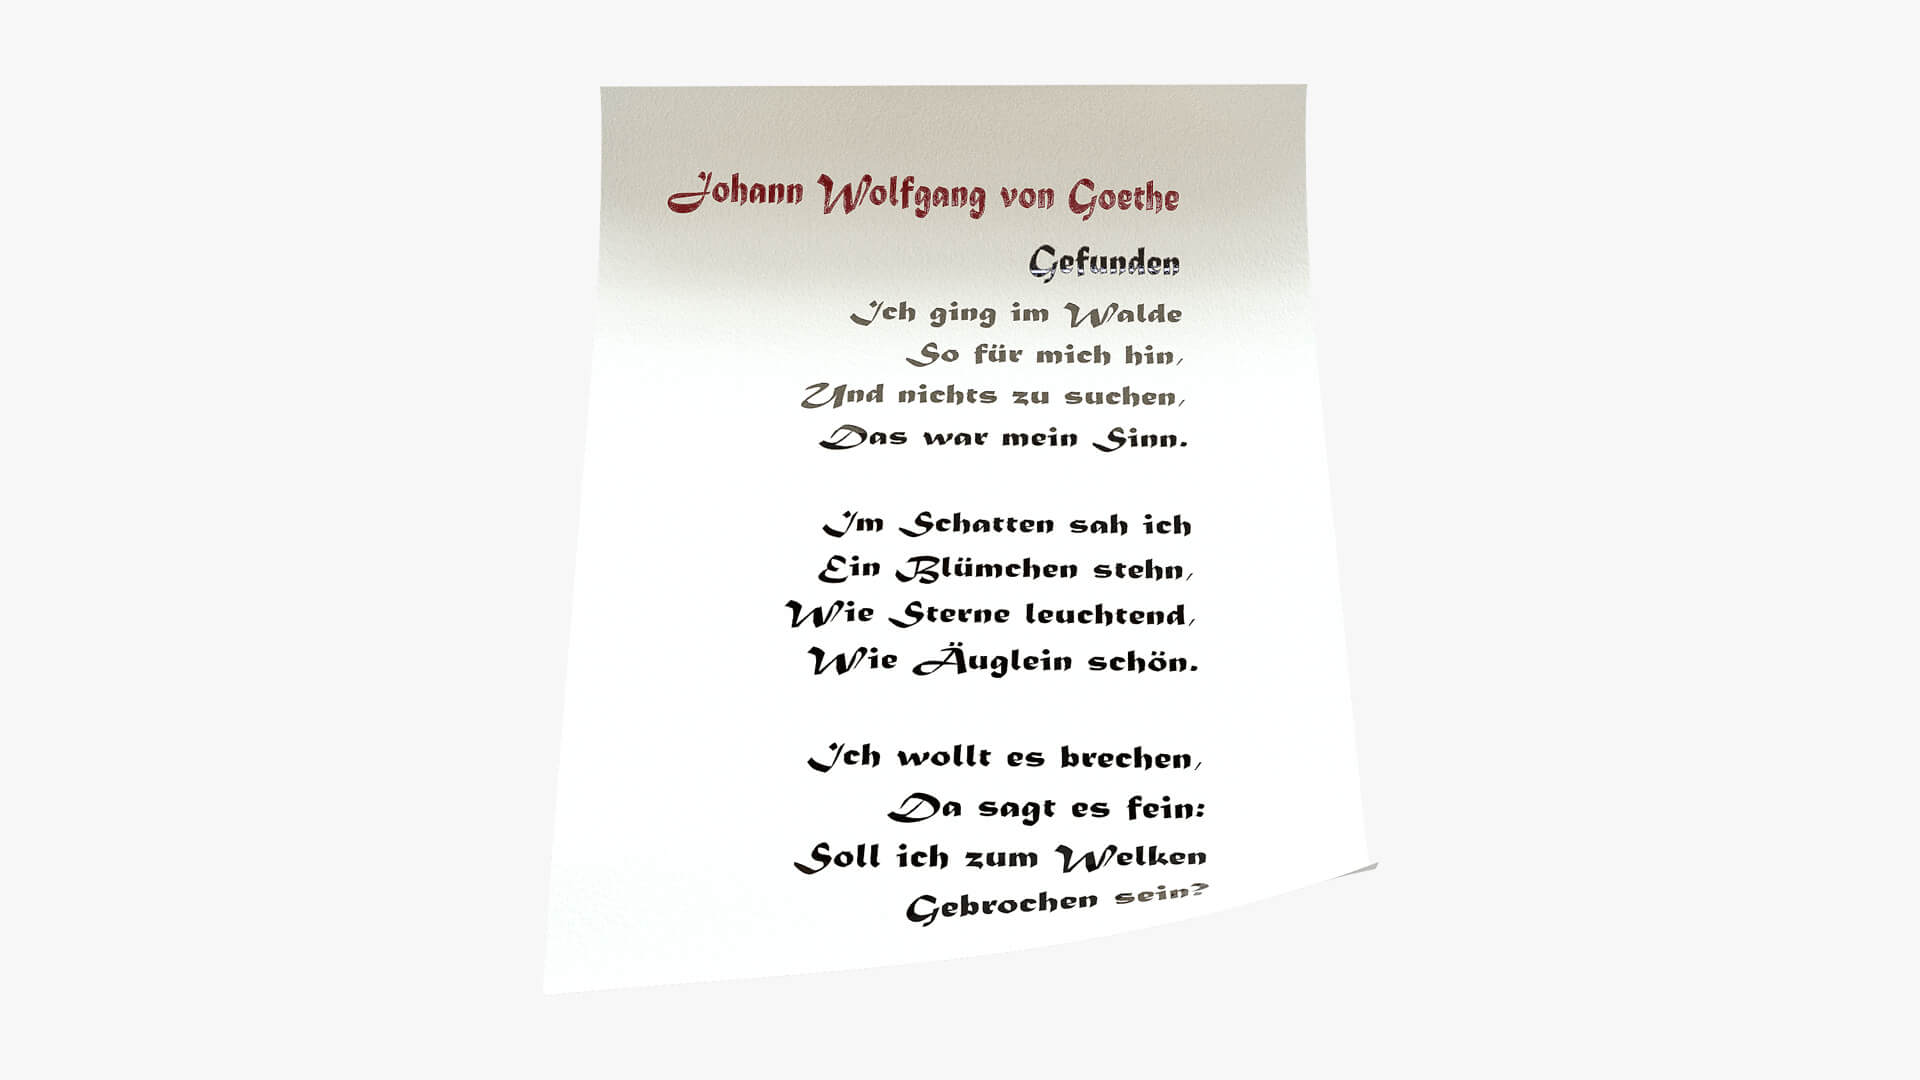 Johann Wolfgang von Goethe
Gefunden
Ich ging im Walde
So für mich hin,
Und nichts zu suchen,
Das war mein Sinn.
Im Schatten sah ich
Ein Blümchen stehn,
Wie Sterne leuchtend,
Wie Äuglein schön.
Ich wollt es brechen,
Da sagt es fein:
Soll ich zum Welken
Gebrochen sein?